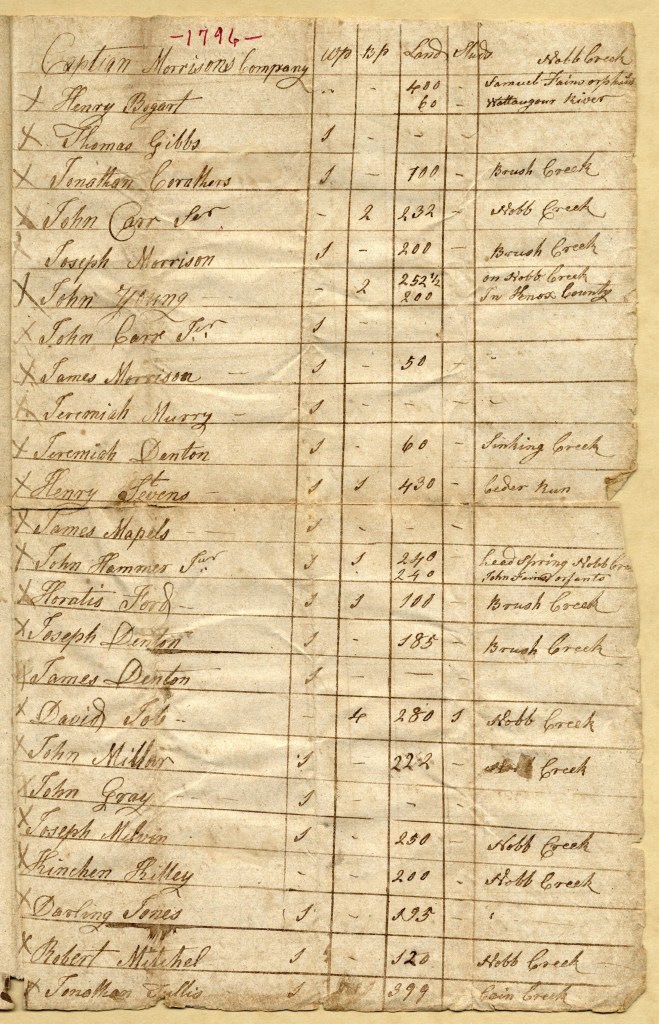 -1796-
Captian Morrisons Company WP BP Land Studs Nobb Creek
X Henry Bogart - - 400 Samuel Fains orphants
60 Wattaugour River
X Thomas Gibbs 1 - - -
X Jonathan Corathers 1 - 100 - Brush Creek
X John Carr Ser - 2 232 - Nobb Creek
Joseph Morrison 1 - 200 - Brush Creek
X John Young - 2 252 1/2 - on Nobb Creek
200 In Knox County
X John Carr Jur 1 - - - -
X James Morrison 1 - 50 - -
X Jeremiah Murry - 1 - - - -
X Jeremiah Denton 1 - 60 - Sinking Creek
X Henry Stevens - 1 1 430 - Ceder Run
X James Mapels - 1 - - -
X John Hammer Jur 1 1 240 - head Spring Nobb Cree
240 John Fains orfants
X Horatis Ford - 1 1 100 - Brush Creek
X Joseph Denton 1 - 185 - Brush Creek
X James Denton 1 - - -
X David Job - - 4 280 1 Nobb Creek
X John Millar 1 - 222 - Nobb Creek
X John Gray - 1 - - -
X Joseph Melvin 1 - 250 - Nobb Creek
X Kinchen Killey - - 200 - Nobb Creek
X Darling Jones 1 - 195 -
X Robert Mitchel 1 - 120 Nobb Creek
X Jonathan Tullis 1 399 - Cain Creek